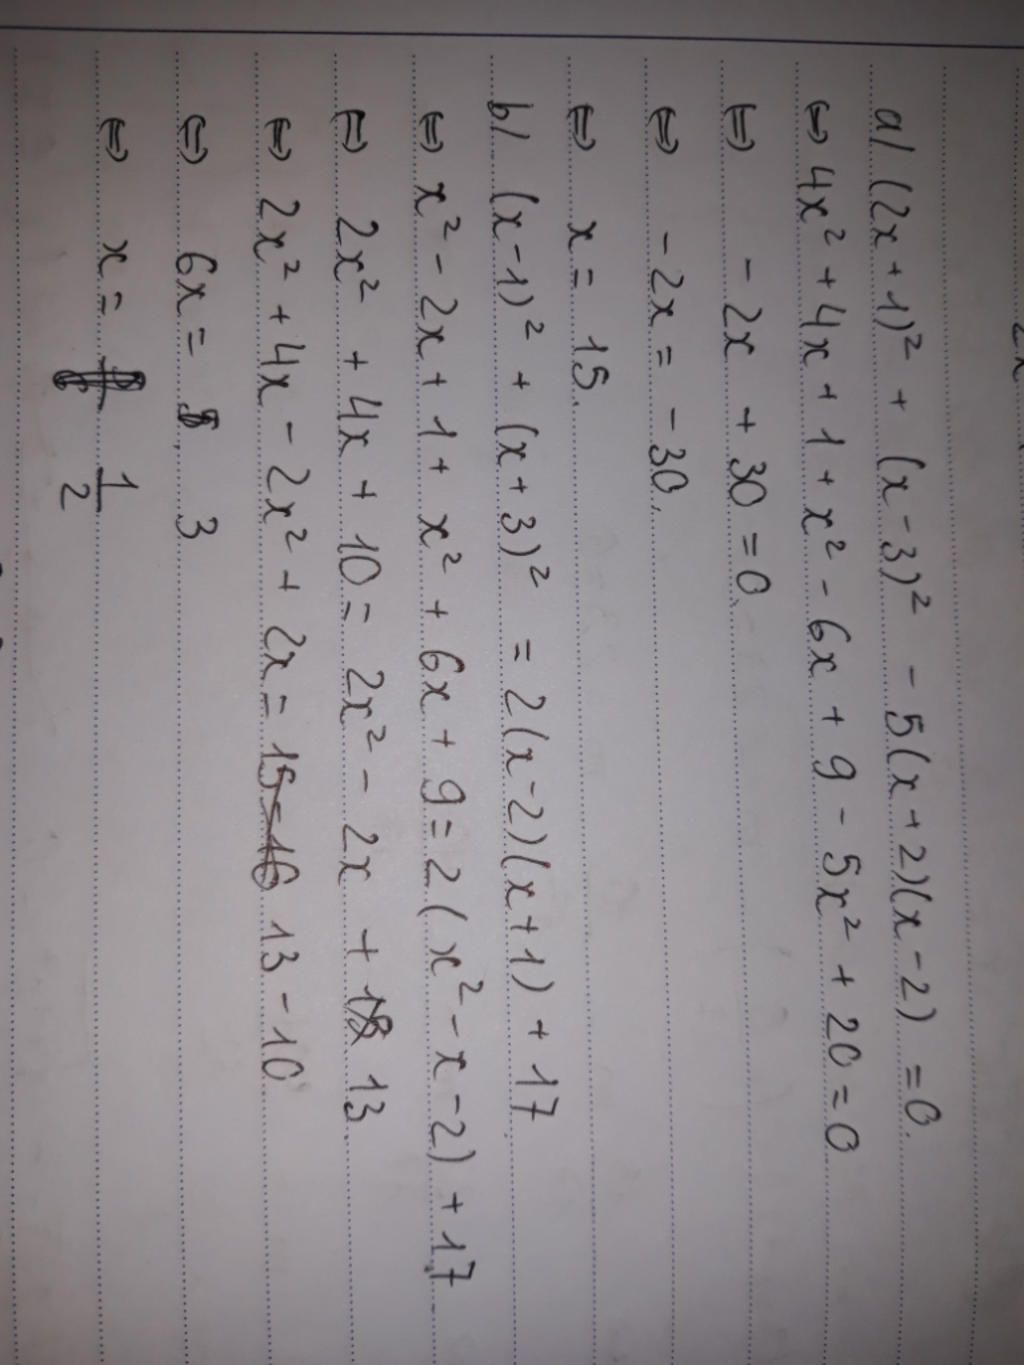 a/ (2x+1)² + (x-3)² - 5(x+2)(x-2) = 0.
⇔ 4x² + 4x + 1 + x² - 6x + 9 - 5x² + 20 = 0
⇔ - 2x + 30 = 0.
⇔ - 2x = - 30.
⇔ x = 15.
b/ (x-1)² + (x+3)² = 2(x-2)(x+1) + 17.
⇔ x² - 2x + 1 + x² + 6x + 9 = 2(x² - x - 2) + 17.
⇔ 2x² + 4x + 10 = 2x² - 2x + 13.
⇔ 2x² + 4x - 2x² + 2x = 13 - 10
⇔ 6x = 3
⇔ x = 1/2